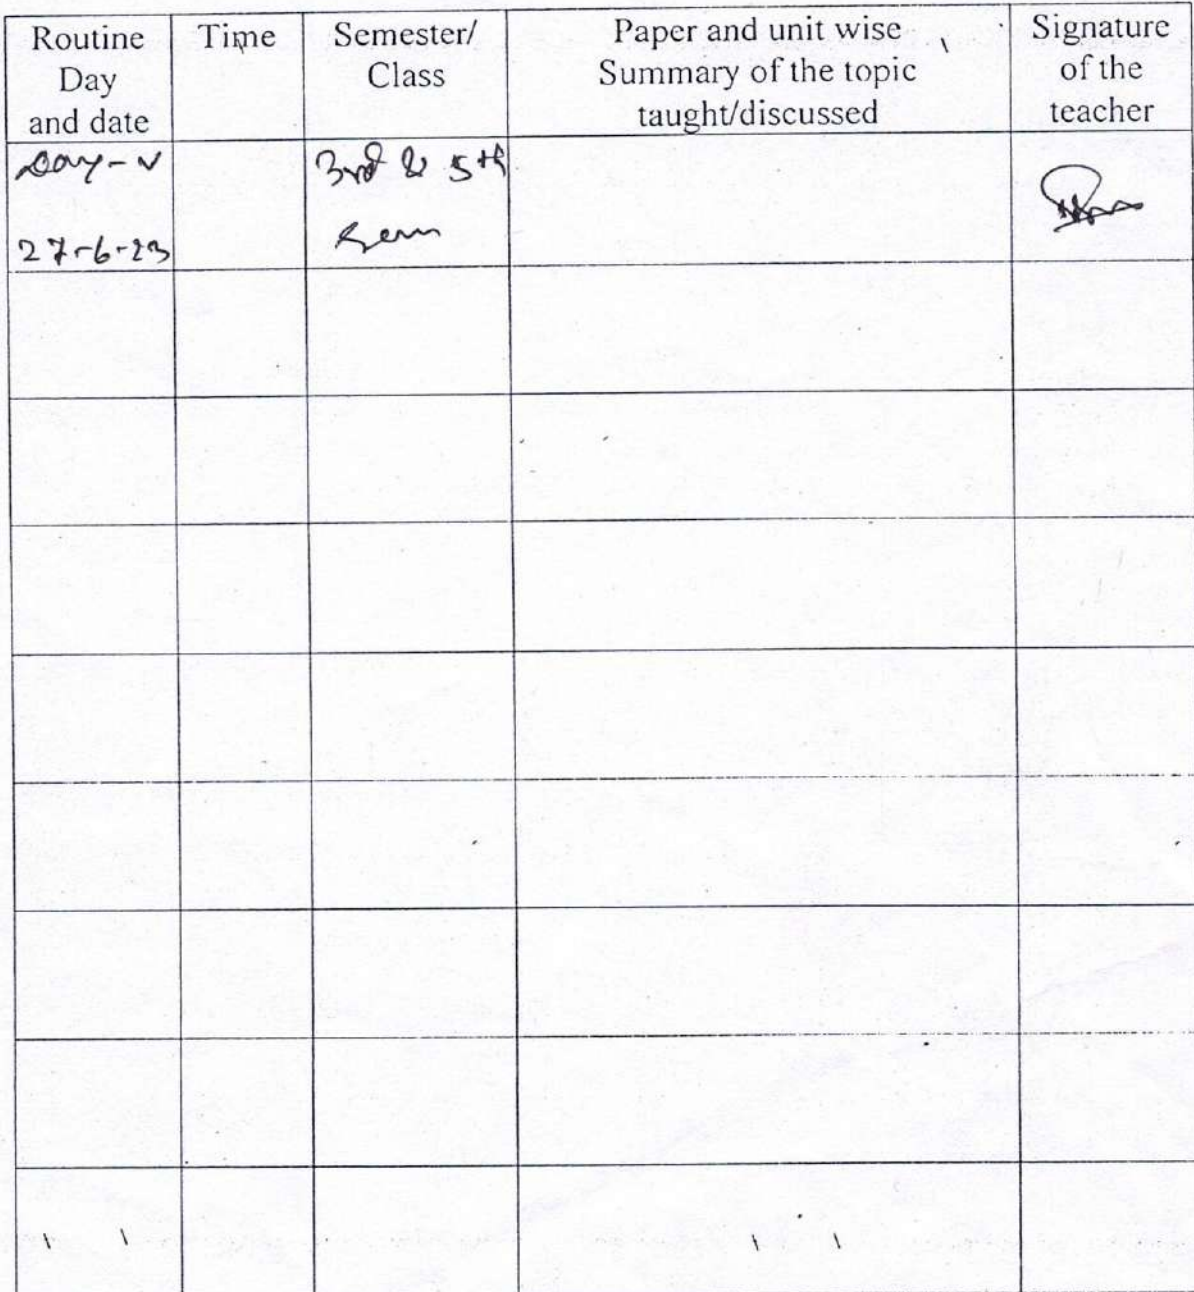 Routine
Day
and date
Time
Semester/
Class
Paper and unit wise
Summary of the topic
taught/discussed
Signature
of the
teacher
Day-V
27-6-23
3rd & 5th
Sem